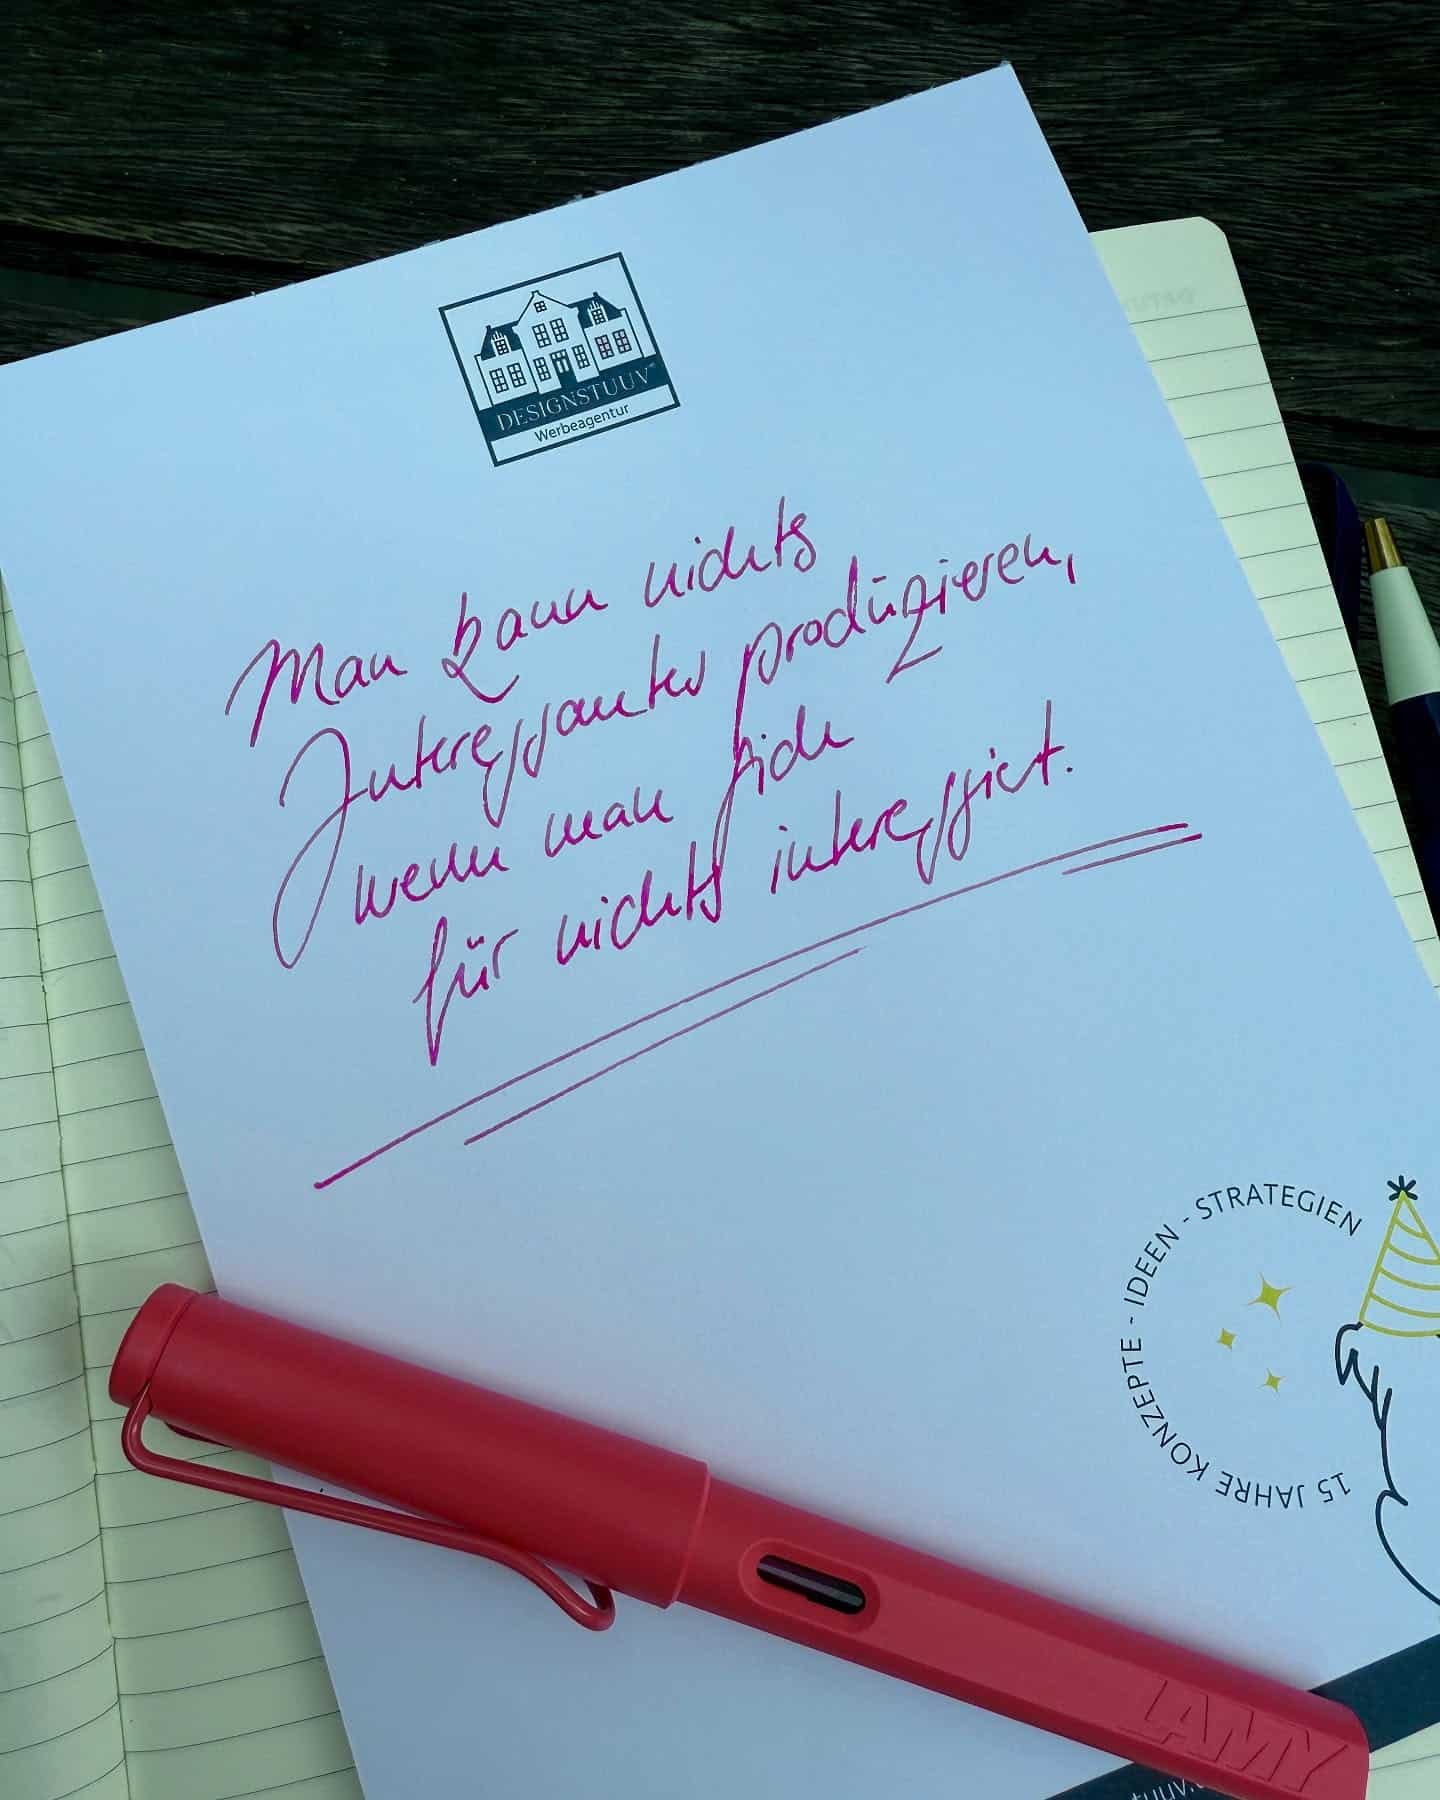 DESIGNSTUUV®
Werbeagentur
Man kann nichts
Interessantes produzieren,
wenn man sich
für nichts interessiert.
15 JAHRE KONZEPTE - IDEEN - STRATEGIEN
LAMY